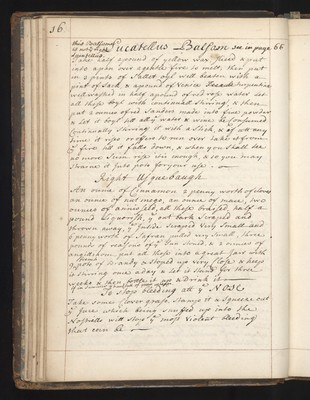 16.
this Balsam
is not right
Lucatellus Balsam see in page 66
Take half a pound of yellow wax sliced a put
into a pan over a gentle fire to melt, then put
in 2 pints of Sallet oyl well beaten with a
pint of Sack, & a pound of Venice
well washed in half a pint of red rose water let
all these boyl with continuall stirring, & then
put 2 ounces of red Sanders made into fine powder
& let it boyl till all ye water & wine be consumed
Continually stirring it with a stick, & if att any
time it rises or offers to run over take it from
ye fire till it falls down, & when you shall see
no more Scum rise itis enough, & so you may
straine it into pots for your use.
Right Usquebaugh
An ounce of Cinnamon 2 penny worth of cloves
an ounce of nutmegs, an ounce of mace, two
ounces of anniseed, all these bruised, half a
pound Liquorish, ye out bark Scraped and
thrown away, ye Inside Scraped very Small and
worth of Safron pulled very Small, three
pounds of reasons of ye Sun stoned, & 2 ounces of
put all these into a great Jarr with
of Brandy & stoped up very Close & keep
it stirring once a day & let it stand for three
weeks & then Bottle it up & Drink it
To Stop bleeding att ye NOSE
Take Some Clover grass, Stamp it & squeeze out
ye Juce which being snuffed up into the
Nostrells will Stop ye most violent bleeding
that can be